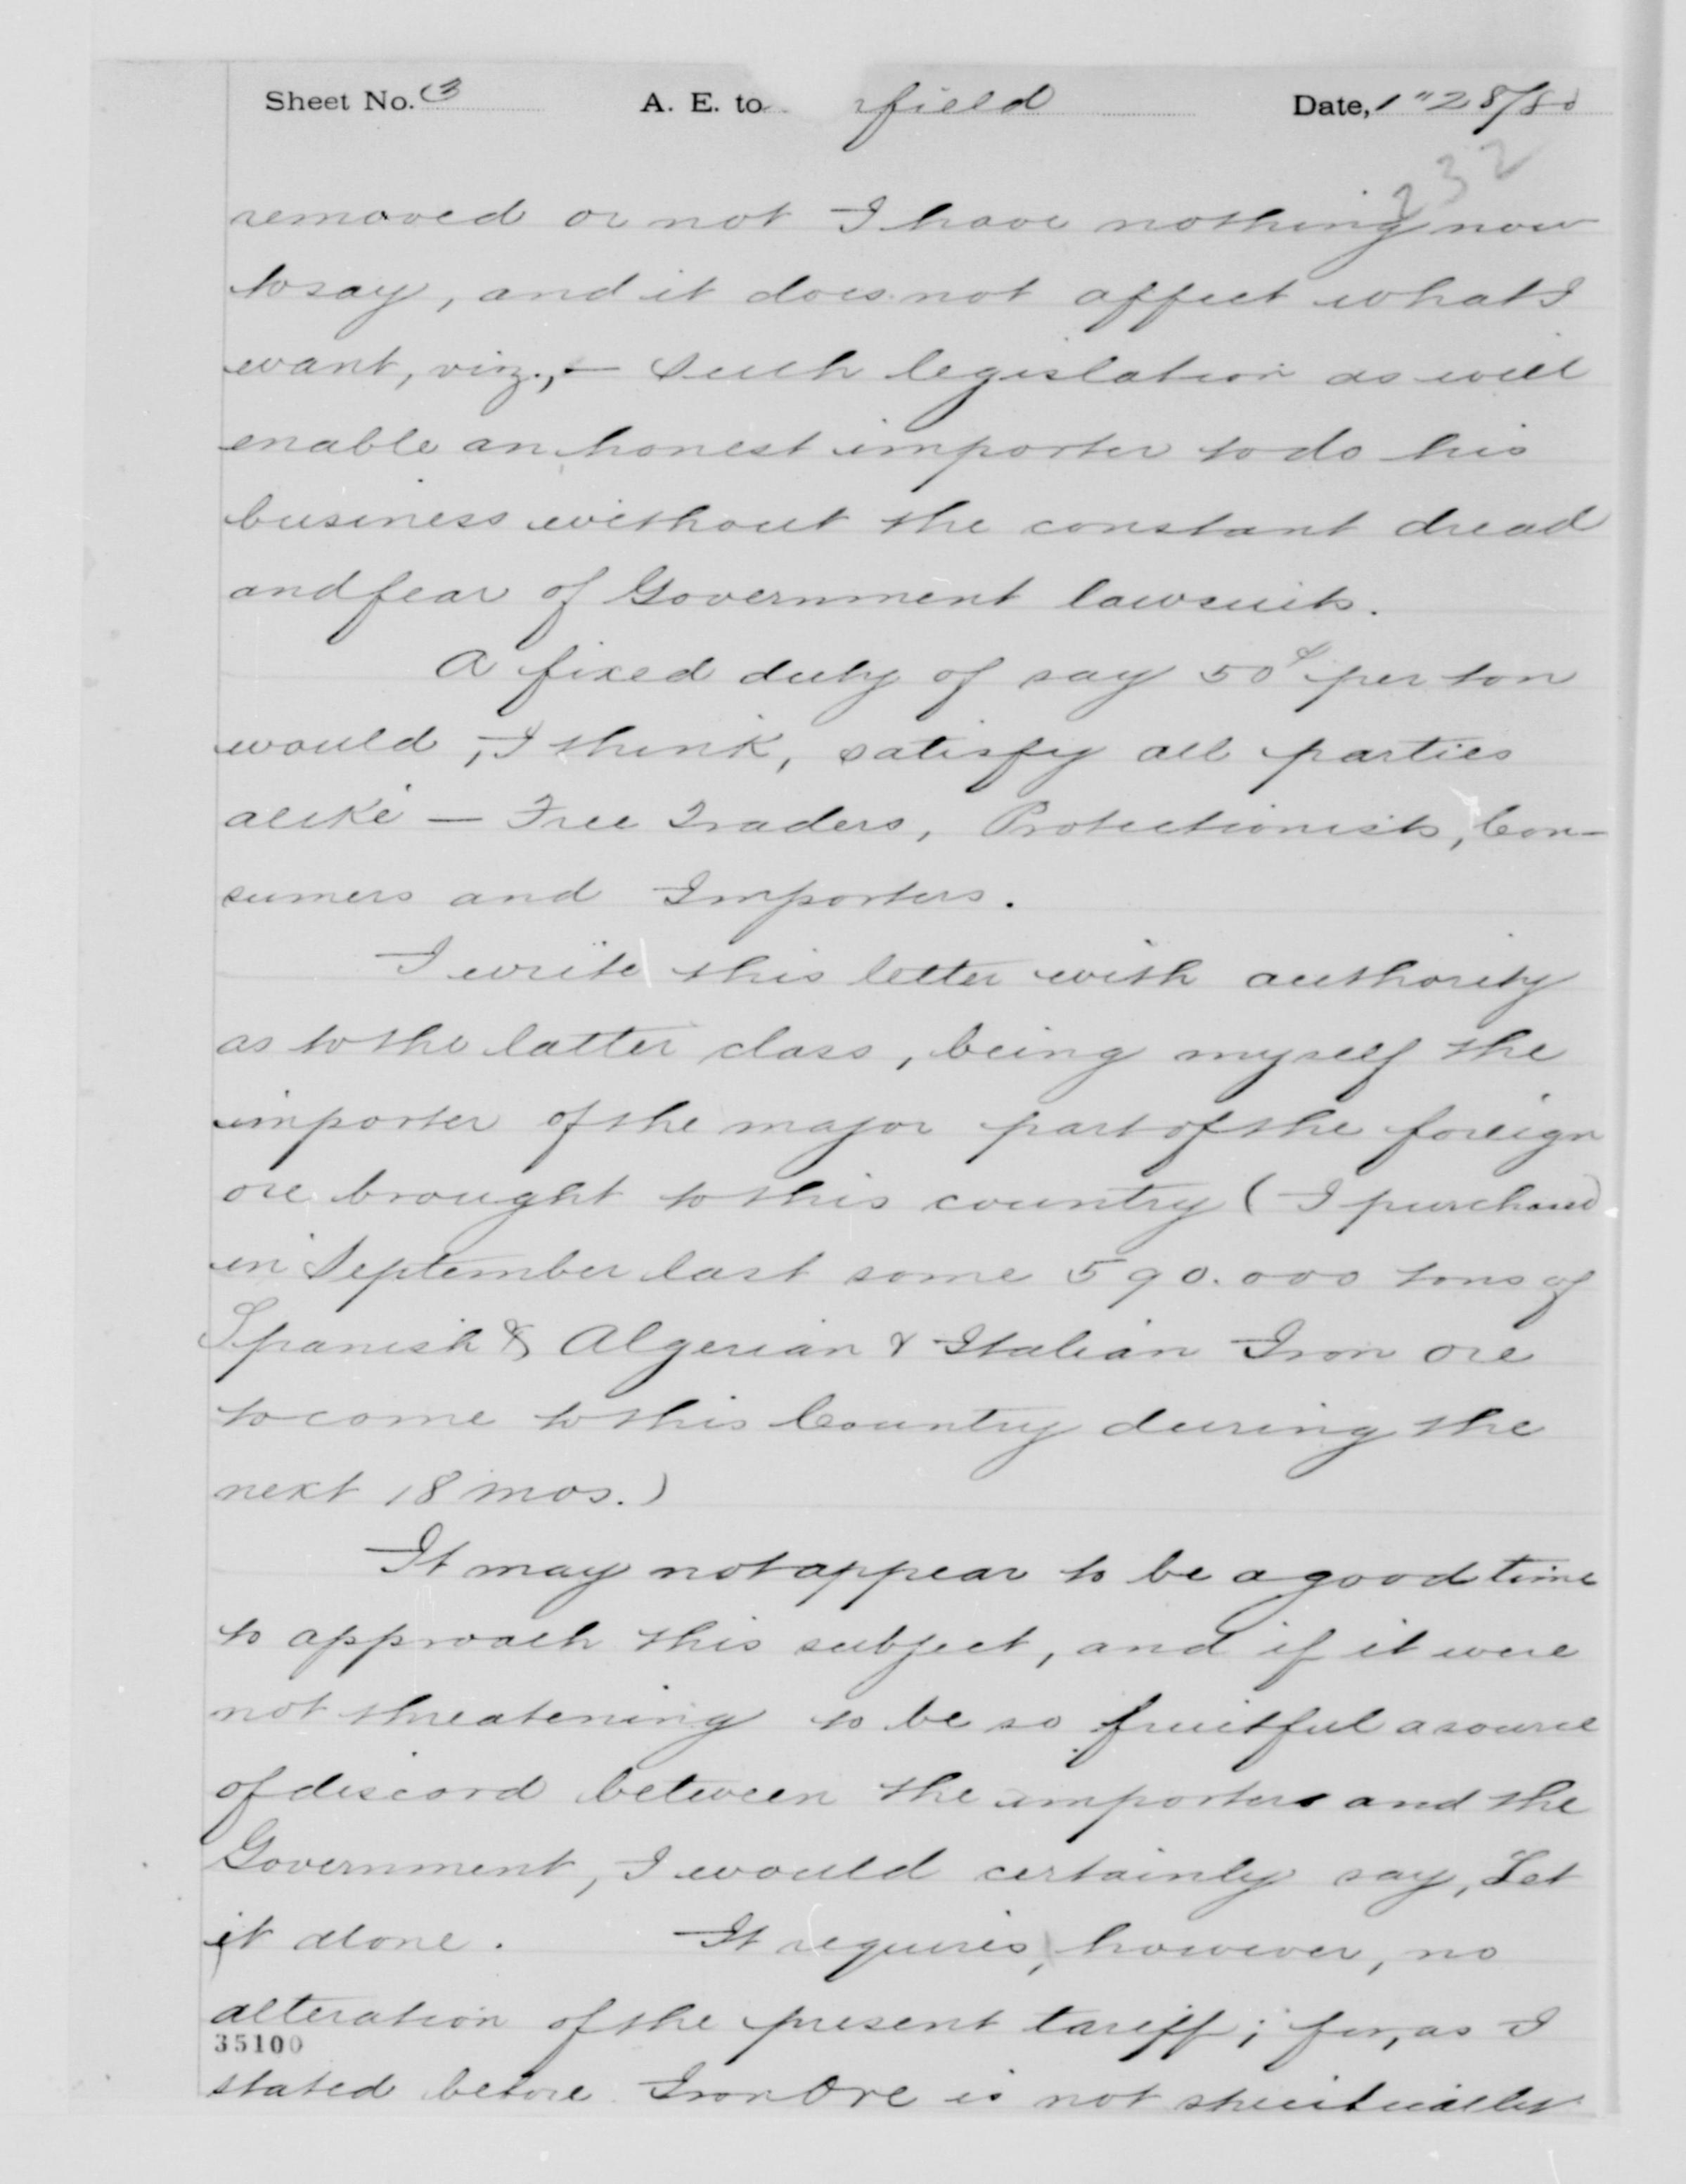 Sheet No. 3 A. E. to rfield Date, 1"28/80
232
removed or not I have nothing now
to say, and it does not affect what I
want, viz., — Such legislation as will
enable an honest importer to do his
business without the constant dread
and fear of Government lawsuits.
A fixed duty of say 50¢ per ton
would, I think, satisfy all parties
alike — Free Traders, Protectionists, Con-
sumers and Importers.
I write this letter with authority
as to the latter class, being myself the
importer of the major part of the foreign
ore brought to this country (I purchased
in September last some 590.000 tons of
Spanish & Algerian & Italian Iron ore
to come to this Country during the
next 18 mos.)
It may not appear to be a good time
to approach this subject, and if it were
not threatening to be so fruitful a source
of discord between the importers and the
Government, I would certainly say, Let
it alone. It requires, however, no
alteration of the present tariff; for, as I
35100
stated before Iron Ore is not specifically